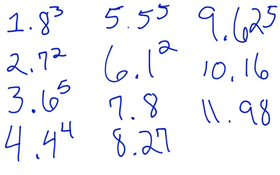 1. 8³
2. 7²
3. 6⁵
4. 4⁴
5. 5⁵
6. 1²
7. 8
8. 27
9. 625
10. 16
11. 98